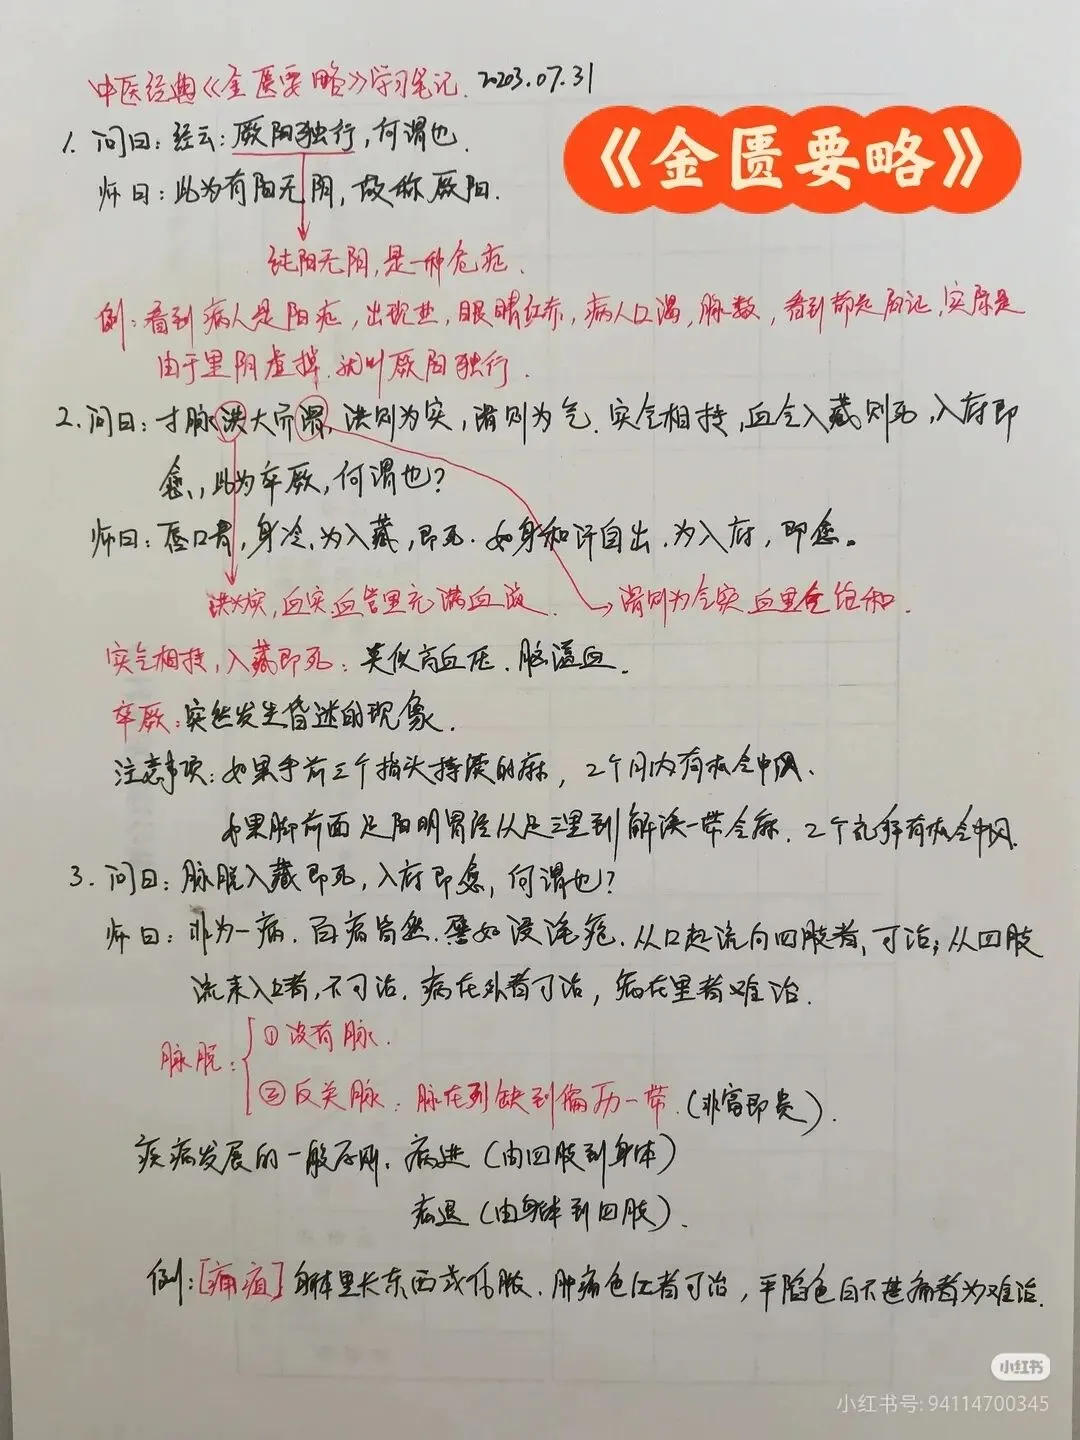 中医经典《金匮要略》学习笔记. 2023.07.31
《金匮要略》
1. 问曰：经云：厥阳独行，何谓也.
师曰：此为有阳无阴，故称厥阳.
纯阳无阴，是一种危症.
例：看到病人是阳症，出现热，眼睛红赤，病人口渴，脉数，看到都是阳证，实际是
由于里阴虚掉.就叫厥阳独行.
2. 问曰：寸脉洪大而滑，洪则为实，滑则为气.实气相搏，血气入藏则死，入府即
愈，此为卒厥，何谓也？
师曰：唇口青，身冷，为入藏，即死.如身和汗自出.为入府，即愈。
洪为实，血实血管里充满血液
滑则为气实 血里气饱和.
实气相搏，入藏即死：类似高血压.脑溢血.
卒厥：突然发生昏迷的现象.
注意事项：如果手前三个指头持续的麻，2个月内有机会中风.
如果脚前面足阳明胃经从足三里到解溪一带会麻.2个礼拜有机会中风.
3. 问曰：脉脱入藏即死，入府即愈，何谓也？
师曰：非为一病.百病皆然.譬如浸淫疮.从口起流向四肢者，可治；从四肢
流来入口者，不可治.病在外者可治，病在里者难治.
脉脱：
①没有脉.
②反关脉：脉在列缺到偏历一带.(非富即贵).
疾病发展的一般原则.病进(由四肢到身体)
病退(由身体到四肢).
例：[痈疽]身体里长东西或化脓.肿痛色红者可治，平陷色白不甚痛者为难治.
小红书
小红书号: 94114700345